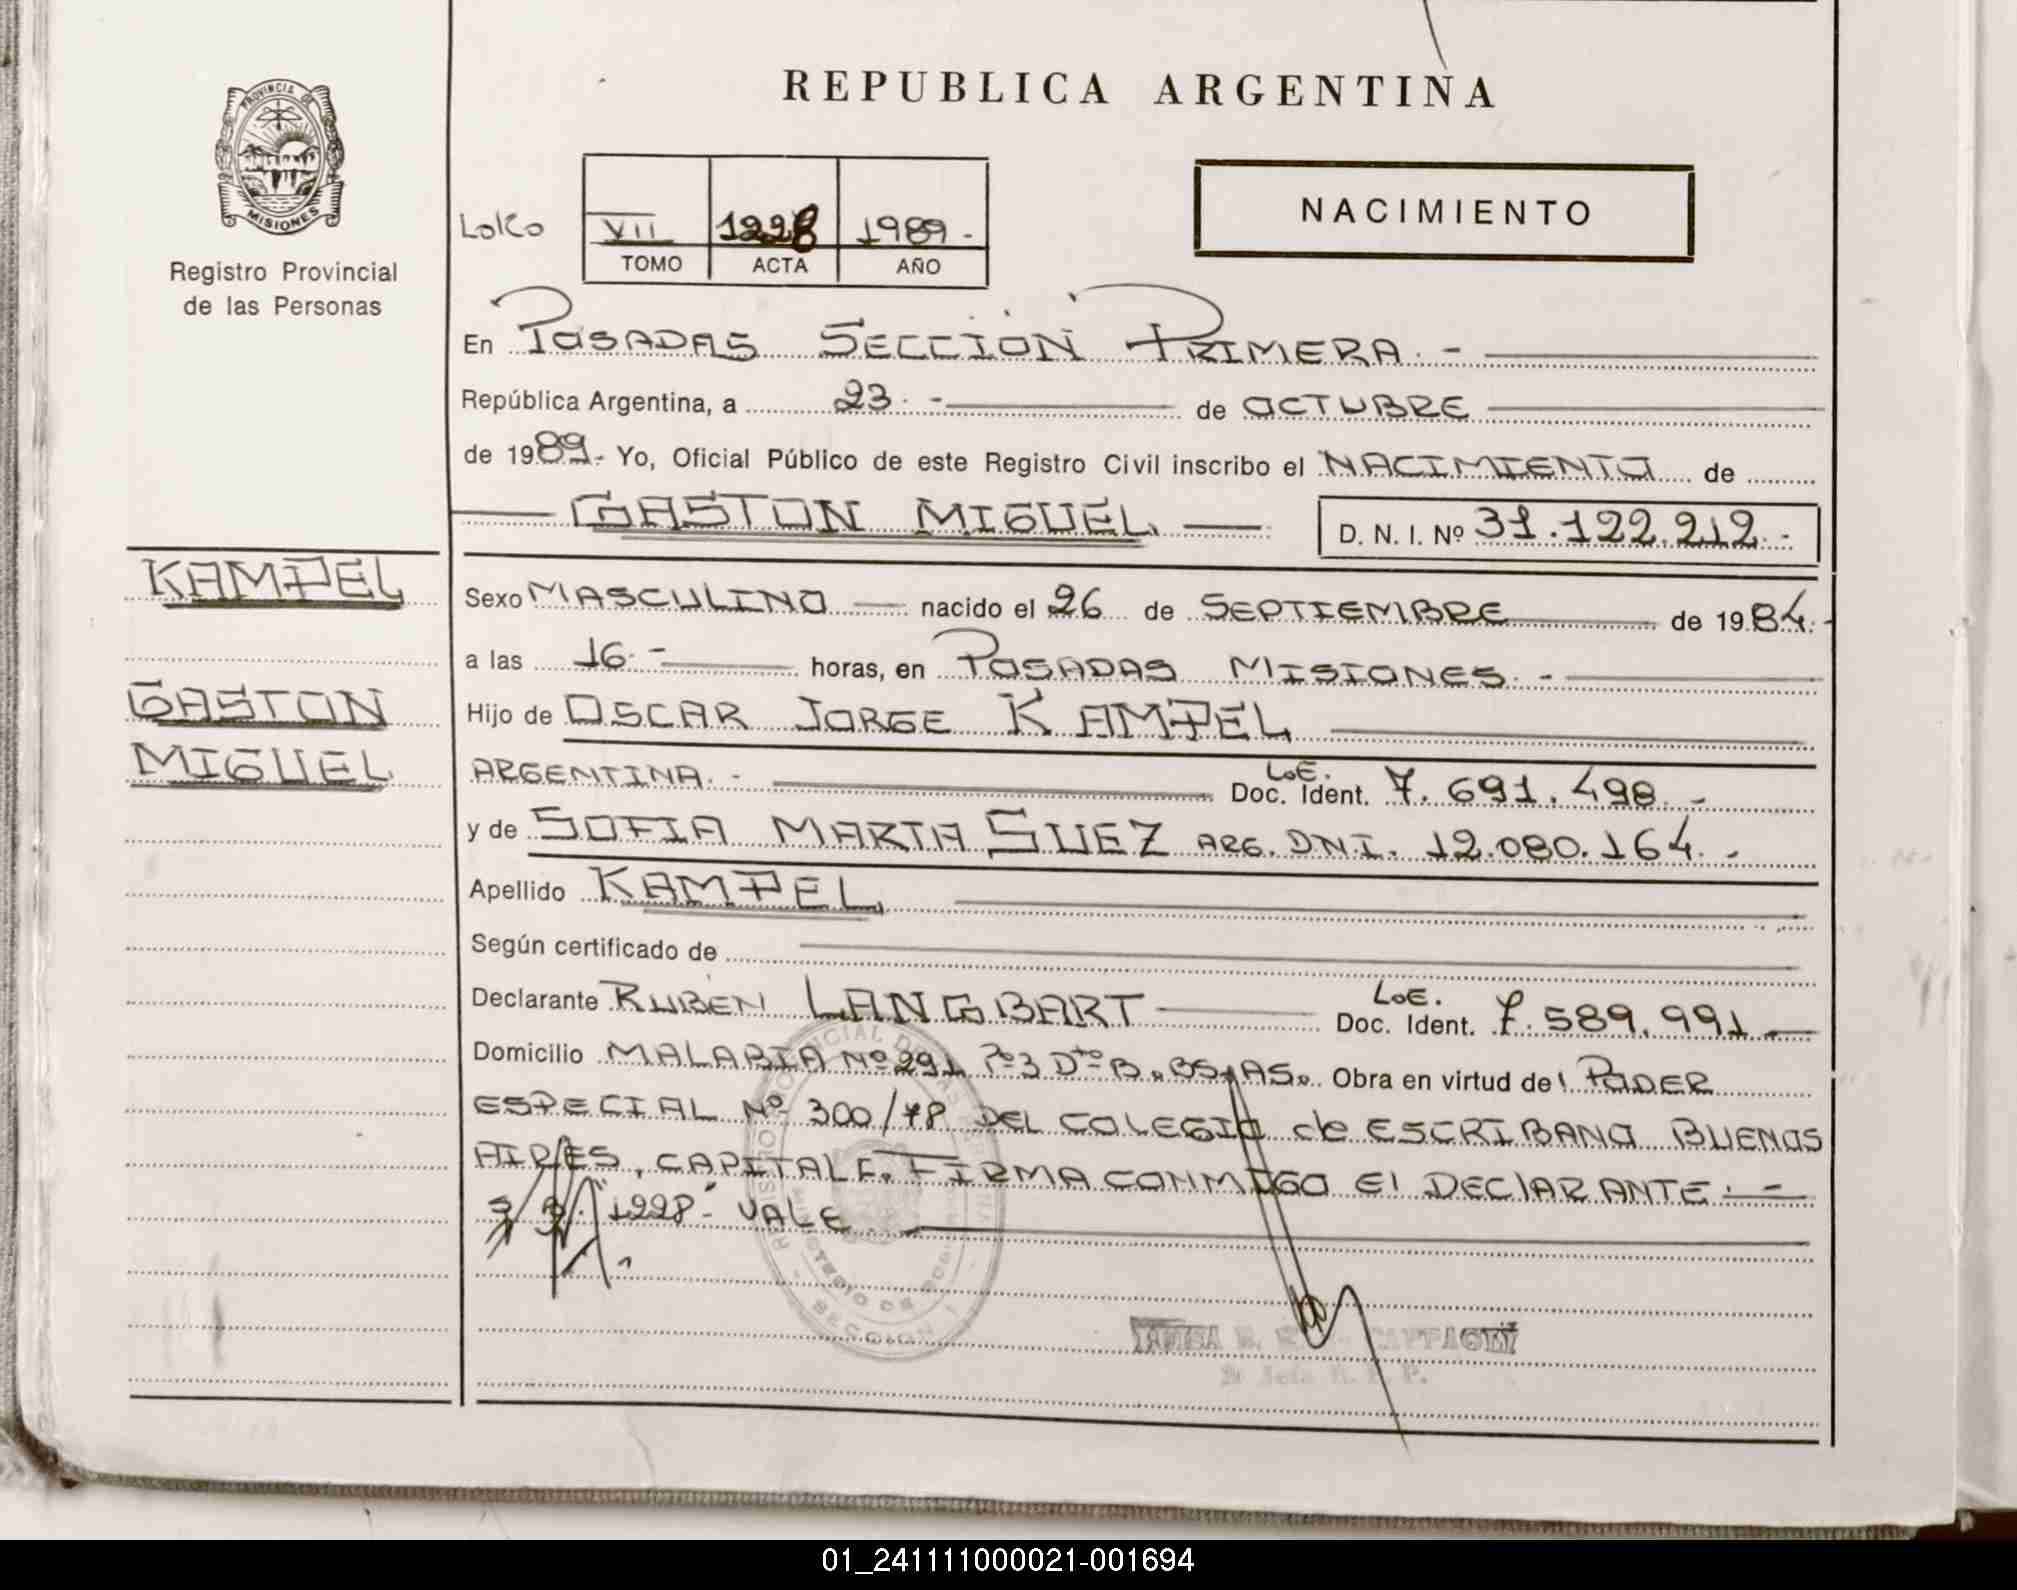 REPUBLICA ARGENTINA
PROVINCIA DE
MISIONES
Registro Provincial
de las Personas
LoKo
VII 1228 1989.-
TOMO ACTA AÑO
NACIMIENTO
En POSADAS SECCION PRIMERA.-
República Argentina, a 23.- de OCTUBRE
de 1989.- Yo, Oficial Público de este Registro Civil inscribo el NACIMIENTO de
GASTON MIGUEL. D. N. I. Nº 31.122.212.-
KAMPEL
GASTON
MIGUEL
Sexo MASCULINO nacido el 26 de SEPTIEMBRE de 1984.-
a las 16.- horas, en POSADAS MISIONES.-
Hijo de OSCAR JORGE KAMPEL
ARGENTINA.- L.E. Doc. Ident. 7.691.498.-
y de SOFIA MARTA SUEZ ARG. DNI. 12.080.164.-
Apellido KAMPEL
Según certificado de
Declarante RUBEN LANGBART L.E. Doc. Ident. 7.589.991.-
Domicilio MALABIA Nº 291 Pº3 Dtº B. BS. AS. Obra en virtud de: PODER
ESPECIAL Nº 300/78 DEL COLEGIO de ESCRIBANO BUENOS
AIRES, CAPITAL F. FIRMA CONMIGO El DECLARANTE.-
"1228".- VALE
SECCION
2º Jefe R. P. P.
01_241111000021-001694